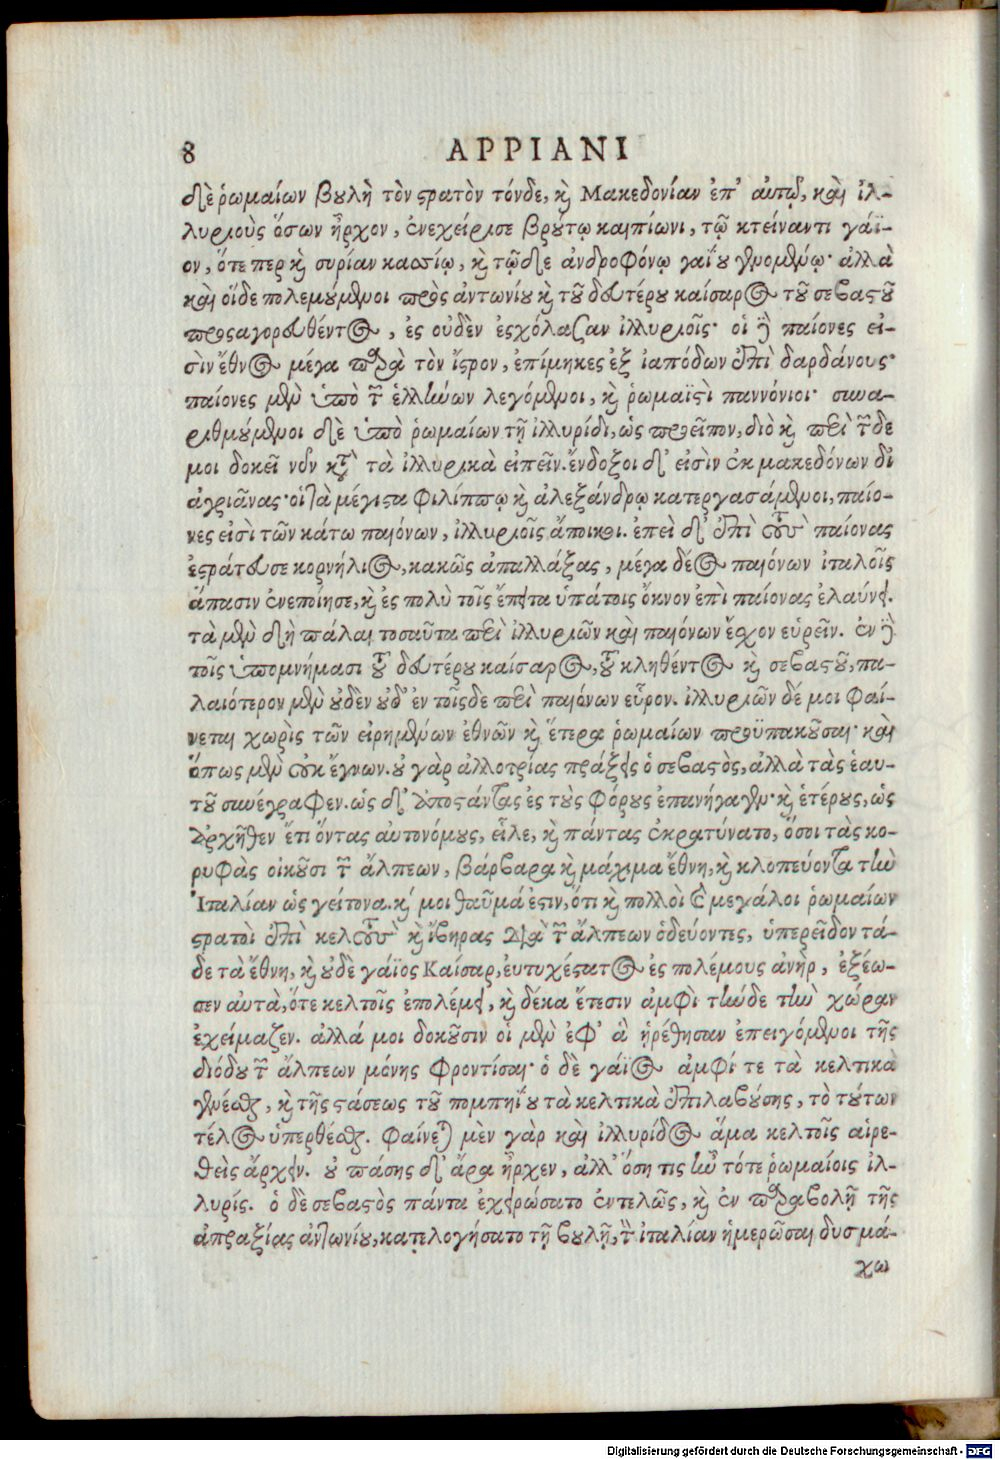 8 ΑΡΡΙΑΝΙ
δὲ ῥωμαίων βουλὴ τὸν στρατὸν τόνδε, καὶ Μακεδονίαν ἐπ' αὐτῷ, καὶ ἰλ-
λυριοὺς ὅσων ἦρχον, ἐνεχείρισε βρούτῳ καιπίωνι, τῷ κτείναντι γάϊ-
ον, ὅτε περ καὶ συρίαν κασσίῳ, καὶ τῷδε ἀνδροφόνῳ γαΐου γενομένῳ· ἀλλὰ
καὶ οἵδε πολεμούμενοι πρὸς ἀντωνίου καὶ τοῦ δευτέρου καίσαρος τοῦ σεβαστοῦ
προσαγορευθέντος, ἐς οὐδὲν ἐσχόλασαν ἰλλυριοῖς· οἱ δὲ παίονες εἰ-
σὶν ἔθνος μέγα παρὰ τὸν ἴστρον, ἐπίμηκες ἐξ ἰαπόδων ἐπὶ δαρδάνους·
παίονες μὲν ὑπὸ τῶν ἑλλήνων λεγόμενοι, καὶ ῥωμαϊστὶ παννόνιοι· συνα-
ριθμούμενοι δὲ ὑπὸ ῥωμαίων τῇ ἰλλυρίδι, ὡς προεῖπον, διὸ καὶ περὶ τῶνδε
μοι δοκεῖ νῦν κατὰ τὰ ἰλλυρικὰ εἰπεῖν. ἔνδοξοι δ' εἰσὶν ἐκ μακεδόνων δι'
ἀγριᾶνας· οἳ τὰ μέγιστα φιλίππῳ καὶ ἀλεξάνδρῳ κατεργασάμενοι, παίο-
νες εἰσὶ τῶν κάτω παιόνων, ἰλλυριοῖς ἄποικοι. ἐπεὶ δ' ἐπὶ τοὺς παίονας
ἐστράτευσε κορνήλιος, κακῶς ἀπαλλάξας, μέγα δέος παιόνων ἰταλοῖς
ἅπασιν ἐνεποίησε, καὶ ἐς πολὺ τοῖς ἔπειτα ὑπάτοις ὄκνον ἐπὶ παίονας ἐλαύνειν.
τὰ μὲν δὴ πάλαι τοσαῦτα περὶ ἰλλυριῶν καὶ παιόνων ἔσχον εὑρεῖν. ἐν δὲ
τοῖς ὑπομνήμασι τοῦ δευτέρου καίσαρος, τοῦ κληθέντος καὶ σεβαστοῦ, πα-
λαιότερον μὲν οὐδὲν οὐδ' ἐν τοῖςδε περὶ παιόνων εὗρον. ἰλλυριῶν δέ μοι φαί-
νεται χωρὶς τῶν εἰρημένων ἐθνῶν καὶ ἕτερα ῥωμαίων προϋπακοῦσαι· καὶ
ὅπως μὲν οὐκ ἔγνων. οὐ γὰρ ἀλλοτρίας πράξεις ὁ σεβαστὸς, ἀλλὰ τὰς ἑαυ-
τοῦ συνέγραφεν. ὡς δ' ἀποστάντας ἐς τοὺς φόρους ἐπανήγαγεν· καὶ ἑτέρους, ὡς
ἀρχῆθεν ἔτι ὄντας αὐτονόμους, εἷλε, καὶ πάντας ἐκρατύνατο, ὅσοι τὰς κο-
ρυφὰς οἰκοῦσι τῶν ἄλπεων, βάρβαρα καὶ μάχιμα ἔθνη, καὶ κλοπεύοντα τὴν
Ἰταλίαν ὡς γείτονα. καί μοι θαῦμά ἐστιν, ὅτι καὶ πολλοὶ καὶ μεγάλοι ῥωμαίων
στρατοὶ ἐπὶ κελτοὺς καὶ ἴβηρας διὰ τῶν ἄλπεων ὁδεύοντες, ὑπερεῖδον τά-
δε τὰ ἔθνη, καὶ οὐδὲ γάϊος Καίσαρ, εὐτυχέστατος ἐς πολέμους ἀνὴρ, ἐξέω-
σεν αὐτὰ, ὅτε κελτοῖς ἐπολέμει, καὶ δέκα ἔτεσιν ἀμφὶ τήνδε τὴν χώραν
ἐχείμαζεν. ἀλλά μοι δοκοῦσιν οἱ μὲν ἐφ' ἃ ᾑρέθησαν ἐπειγόμενοι τῆς
διόδου τῶν ἄλπεων μόνης φροντίσαι· ὁ δὲ γάϊος ἀμφί τε τὰ κελτικὰ
γενέσθαι, καὶ τῆς στάσεως τοῦ πομπηΐου τὰ κελτικὰ ἐπιλαβούσης, τὸ τούτων
τέλος ὑπερθέσθαι. φαίνεται μὲν γὰρ καὶ ἰλλυρίδος ἅμα κελτοῖς αἱρε-
θεὶς ἄρχειν. οὐ πάσης δ' ἄρα ἦρχεν, ἀλλ' ὅση τις ἦν τότε ῥωμαίοις ἰλ-
λυρίς. ὁ δὲ σεβαστὸς πάντα ἐχειρώσατο ἐντελῶς, καὶ ἐν παραβολῇ τῆς
ἀπραξίας ἀντωνίου, κατελογήσατο τῇ βουλῇ, τὴν ἰταλίαν ἡμερῶσαι δυσμά-
χω
Digitalisierung gefördert durch die Deutsche Forschungsgemeinschaft - DFG